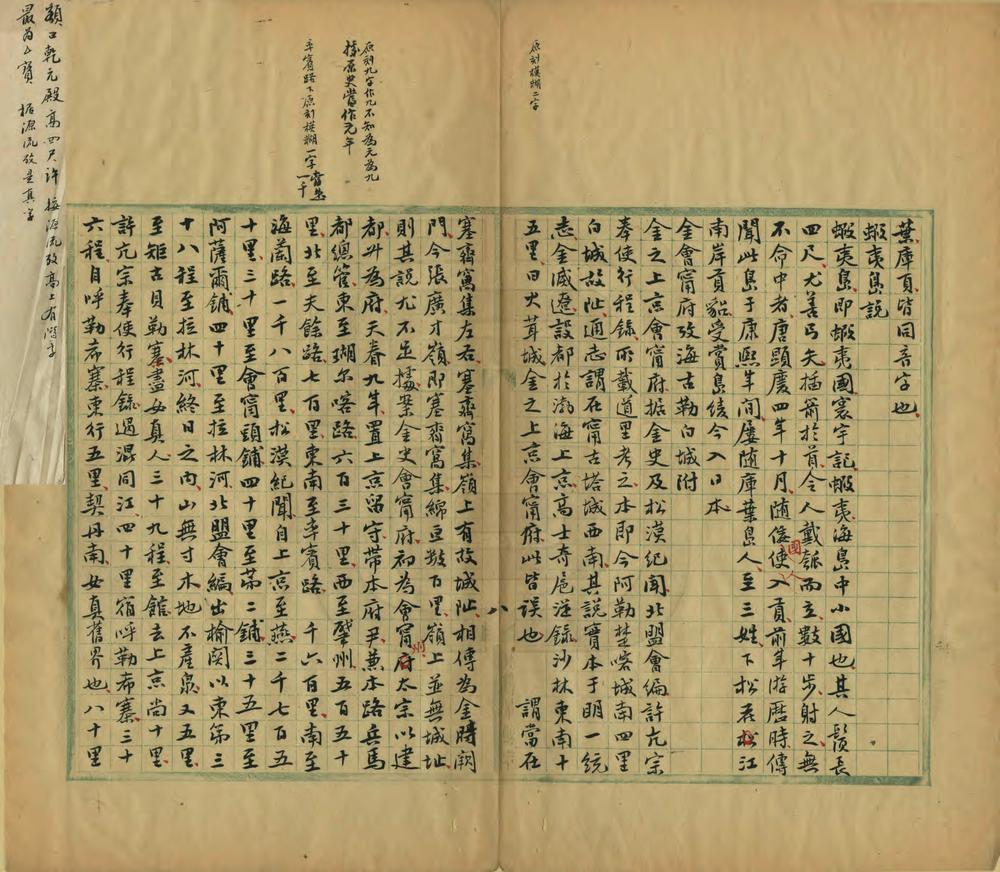 葉庫頁皆同音字也
蝦夷島說
蝦夷島即蝦夷國寰宇記蝦夷海島中小國也其人鬚長
四尺尤善弓矢插箭於首令人戴瓠而立數十步射之無
不命中者唐顯慶四年十月隨倭國使人入貢前年游歷時傳
聞此島于康熙年間屢隨庫葉島人至三姓下松花江
南岸貢貂受賞烏綾今入日本
金會甯府攷海古勒白城附
金之上京會甯府據金史及松漠紀聞北盟會編許亢宗
奉使行程錄所載道里考之本即今阿勒楚喀城南四里
白城故阯通志謂在甯古塔城西南其說實本于明一統
志金滅遼設都於渤海上京高士奇扈從錄沙林東南十
五里曰火茸城金之上京會甯府此皆誤也 謂當在
八
塞齋窩集左右塞齋窩集嶺上有故城阯相傳為金時關
門今張廣才嶺即塞齋窩集綿亘數百里嶺上並無城址
則其說尤不足據案金史會甯府初為會甯州太宗以建
都升為府天眷九年置上京留守帶本府尹兼本路兵馬
都總管東至瑚尔喀路六百三十里西至肇州五百五十
里北至夫餘路七百里東南至率賓路 千六百里南至
海蘭路一千八百里松漠紀聞自上京至燕二千七百五
十里三十里至會甯頭鋪四十里至第二鋪三十五里至
阿薩爾鋪四十里至拉林河北盟會編出榆關以東第三
十八程至拉林河終日之內山無寸木地不產泉又五里
至矩古貝勒寨盡女真人三十九程至館去上京尚十里
許亢宗奉使行程錄過混同江四十里宿呼勒希寨三十
六程自呼勒希寨東行五里契丹南女真舊界也八十里
原刻模糊二字
原刻九字作九不知為元為九
據原史當作元年
率賓路下原刻模糊一字當是一千
額口乾元殿高四尺許 據源流攷高上有階字
最為上寶 據源流攷是真字